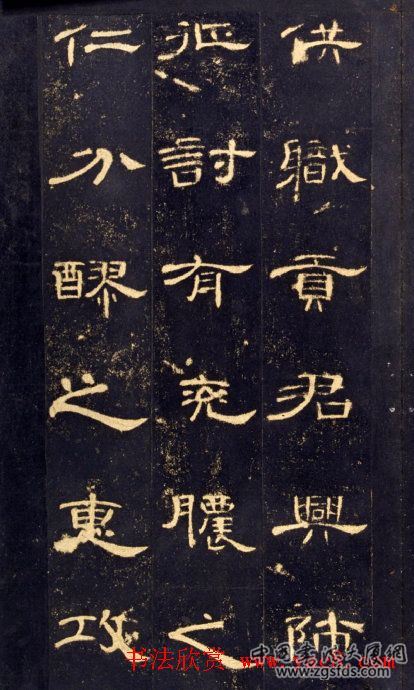 供職貢君興師
征討有兗膿之
仁分醪之惠攻
书法欣赏 www.yac8.com
中国书法大展网
www.zgsfds.com